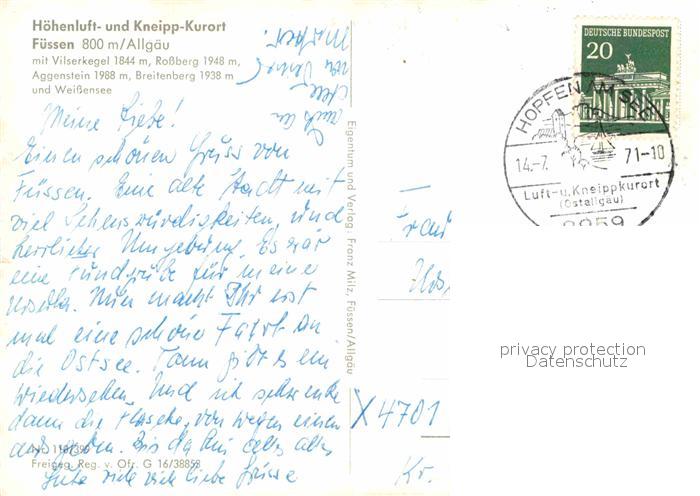 Höhenluft- und Kneipp-Kurort
Füssen 800 m/Allgäu
mit Vilserkegel 1844 m, Roßberg 1948 m,
Aggenstein 1988 m, Breitenberg 1938 m
und Weißensee
Meine Liebe!
Einen schönen Gruss von
Füssen. Eine alte Stadt mit
viel Sehenswürdigkeiten, und
herrlicher Umgebung. Es wär
eine Fundgrube für meine
Nun macht Ihr erst
mal eine schöne Fahrt an
die Ostsee. Dann gibt es ein
Wiedersehen. Und ich
dann die von wegen einen
ausgeben. Bis da hin alles alles
Gute viele viele liebe Grüsse
auch an
Alle
von
Nr. 116/399
Freigeg. Reg. v. Ofr. G 16/38858
Eigentum und Verlag: Franz Milz, Füssen/Allgäu
DEUTSCHE BUNDESPOST
20
HOPFEN AM SEE
14.-7. 71-10
Luft-u.Kneippkurort
(Ostallgäu)
8959
Frau
X 4701
Kr.
privacy protection
Datenschutz